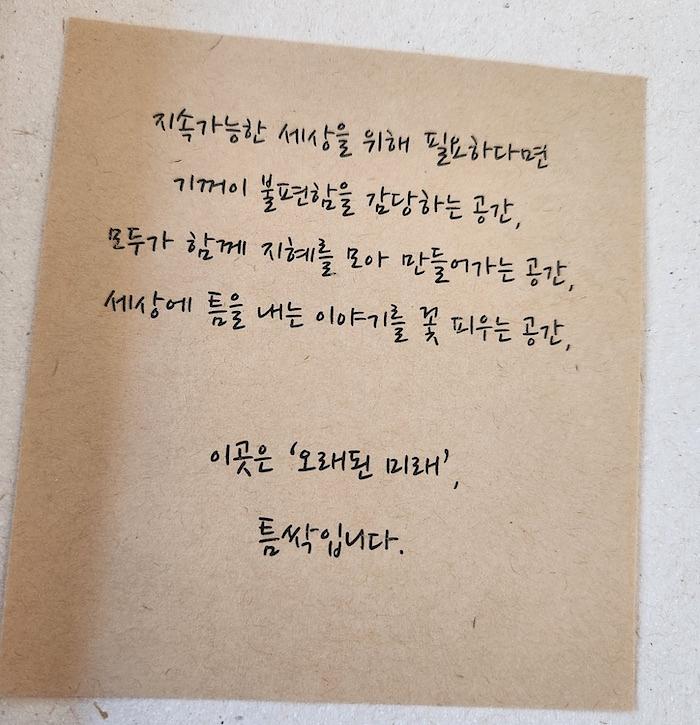 지속가능한 세상을 위해 필요하다면
기꺼이 불편함을 감당하는 공간,
모두가 함께 지혜를 모아 만들어가는 공간,
세상에 틈을 내는 이야기를 꽃 피우는 공간,
이곳은 '오래된 미래',
틈싹입니다.